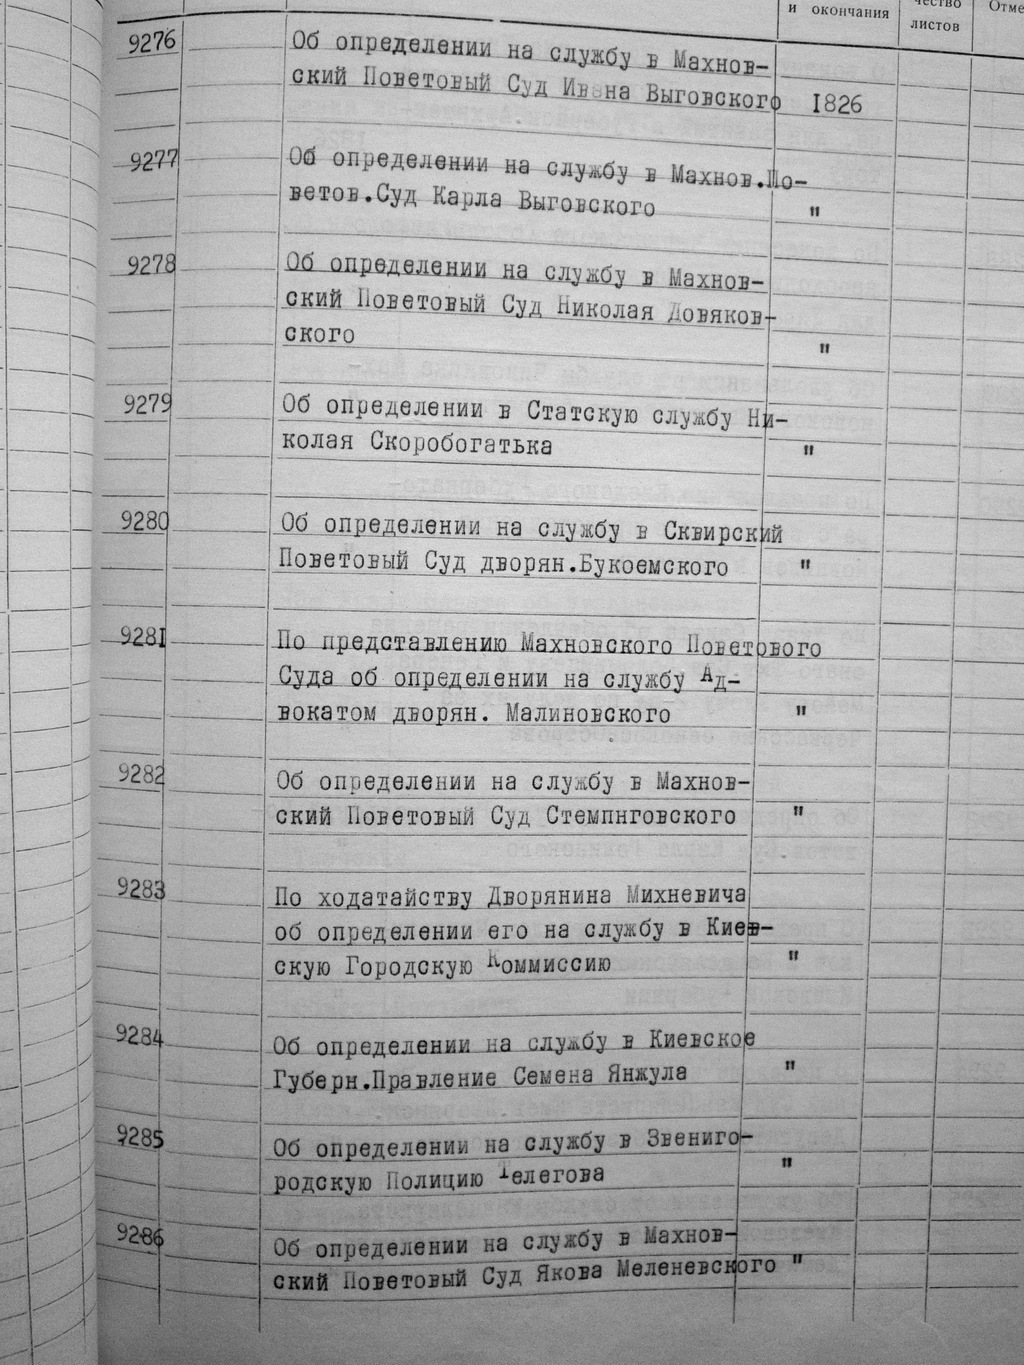 и окончания
чество
листов
Отме
9276 Об определении на службу в Махнов-
ский Поветовый Суд Ивана Выговского 1826
9277 Об определении на службу в Махнов.По-
ветов.Суд Карла Выговского "
9278 Об определении на службу в Махнов-
ский Поветовый Суд Николая Довяков-
ского "
9279 Об определении в Статскую службу Ни-
колая Скоробогатька "
9280 Об определении на службу в Сквирский
Поветовый Суд дворян.Букоемского "
9281 По представлению Махновского Поветового
Суда об определении на службу Ад-
вокатом дворян. Малиновского "
9282 Об определении на службу в Махнов-
ский Поветовый Суд Стемпнговского "
9283 По ходатайству Дворянина Михневича
об определении его на службу в Киев-
скую Городскую Коммиссию "
9284 Об определении на службу в Киевское
Губерн.Правление Семена Янжула "
9285 Об определении на службу в Звениго-
родскую Полицию Телегова "
9286 Об определении на службу в Махнов-
ский Поветовый Суд Якова Меленевского "